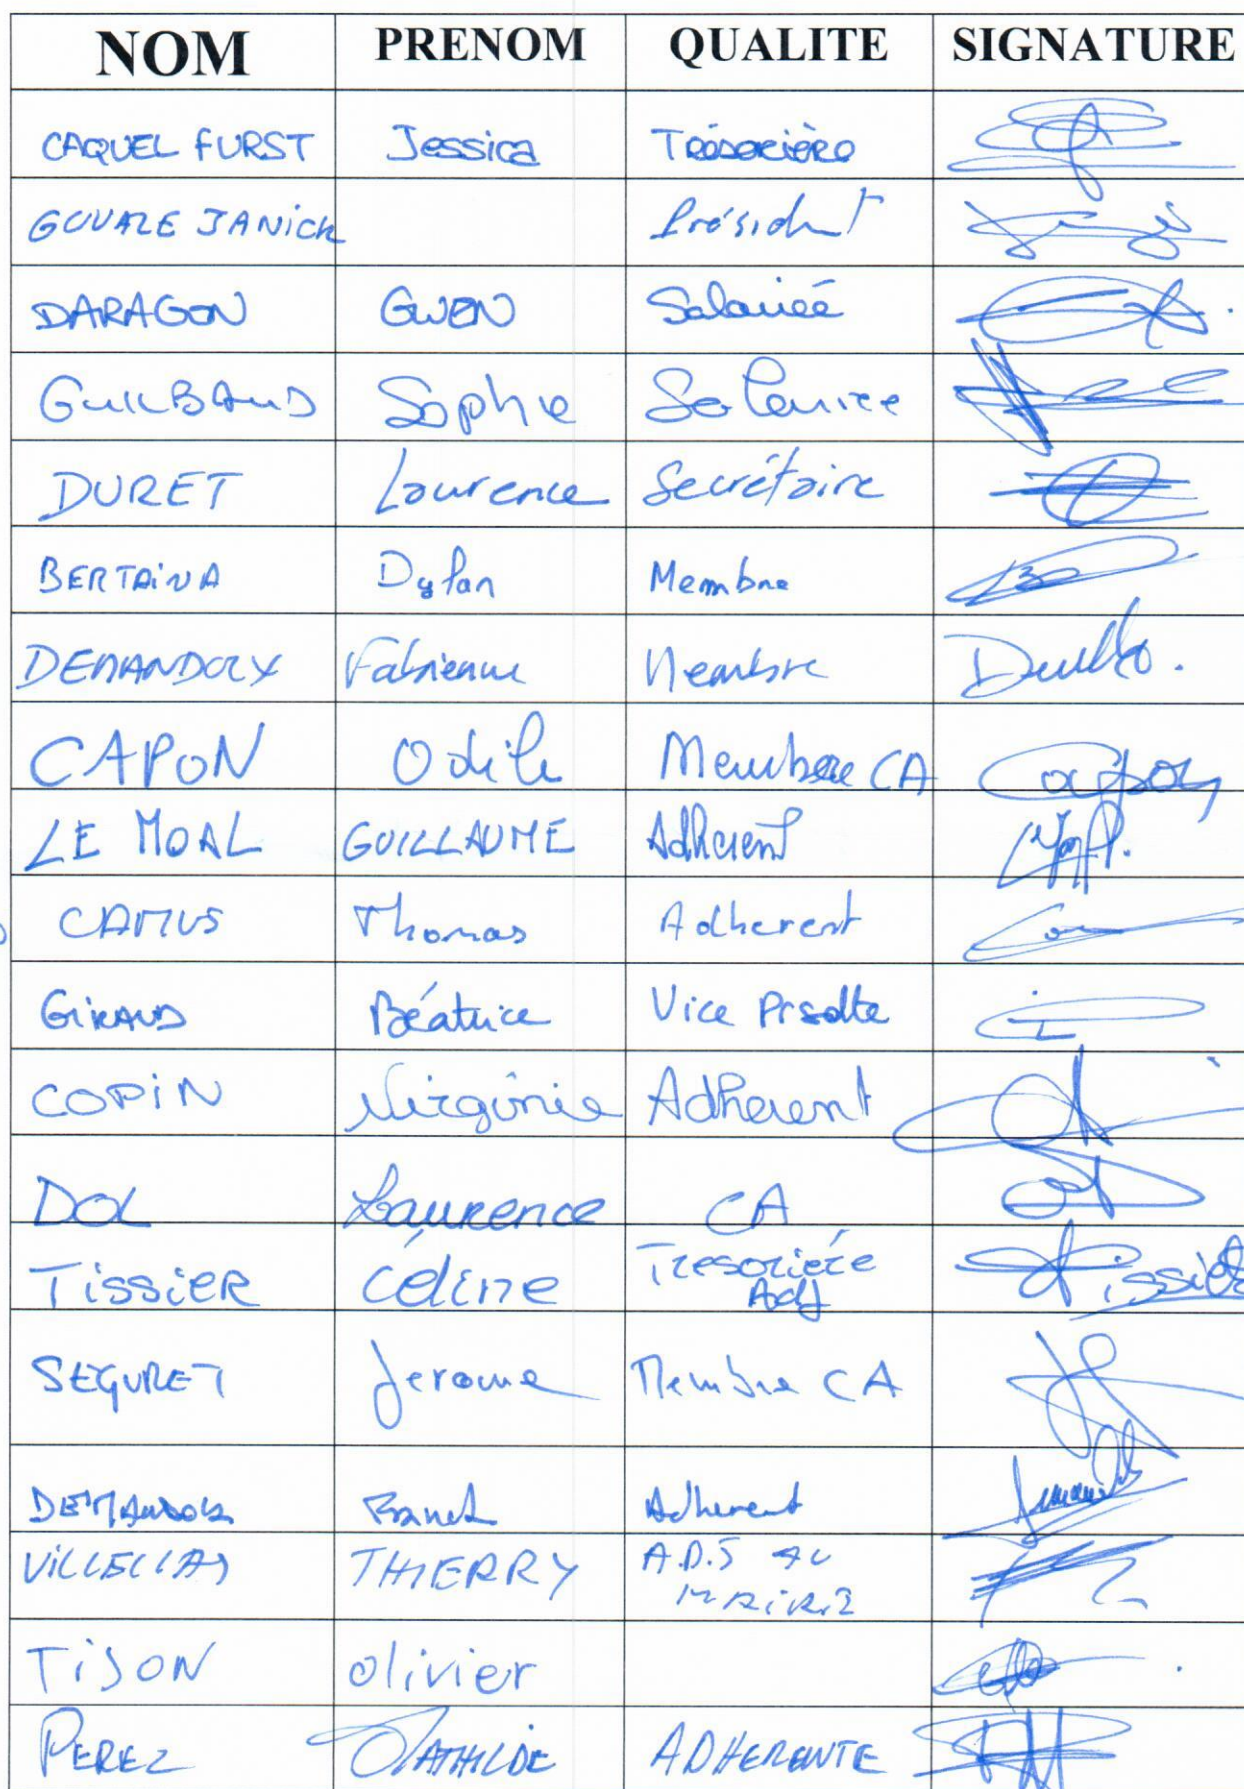 NOM PRENOM QUALITE SIGNATURE
CAQUEL FURST Jessica Trésorière
GOUALE JANICK Président
DARAGON GWEN Salariéé
GUILBAUD Sophie Salariee
DURET Laurence Secrétaire
BERTAINA Dylan Membre
DEMANDOLX Fabienne Membre
CAPON Odile Membre CA Capon
LE MOAL GUILLAUME Adherent
CAMUS Thomas Adherent
GIRAUD Béatrice Vice Prsdte
COPIN Virginie Adherent
DOL Laurence CA
TISSIER Céline Tresorière
Adj Tissier
SEGURET Jerome Membre CA
DEMANDOLX Adherent
THIERRY A.D.S
TISON Olivier
PEREZ MATHILDE ADHERENTE